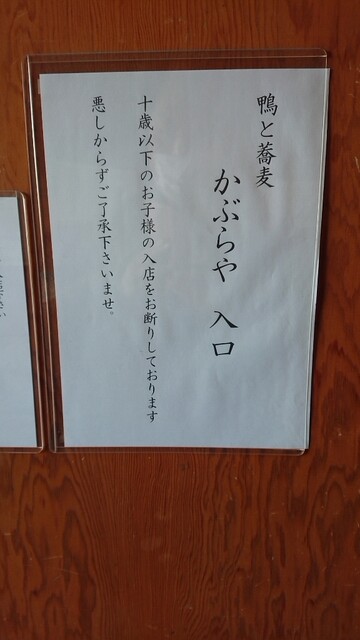 鴨と蕎麦
かぶらや 入口
十歳以下のお子様の入店をお断りしております
悪しからずご了承下さいませ。